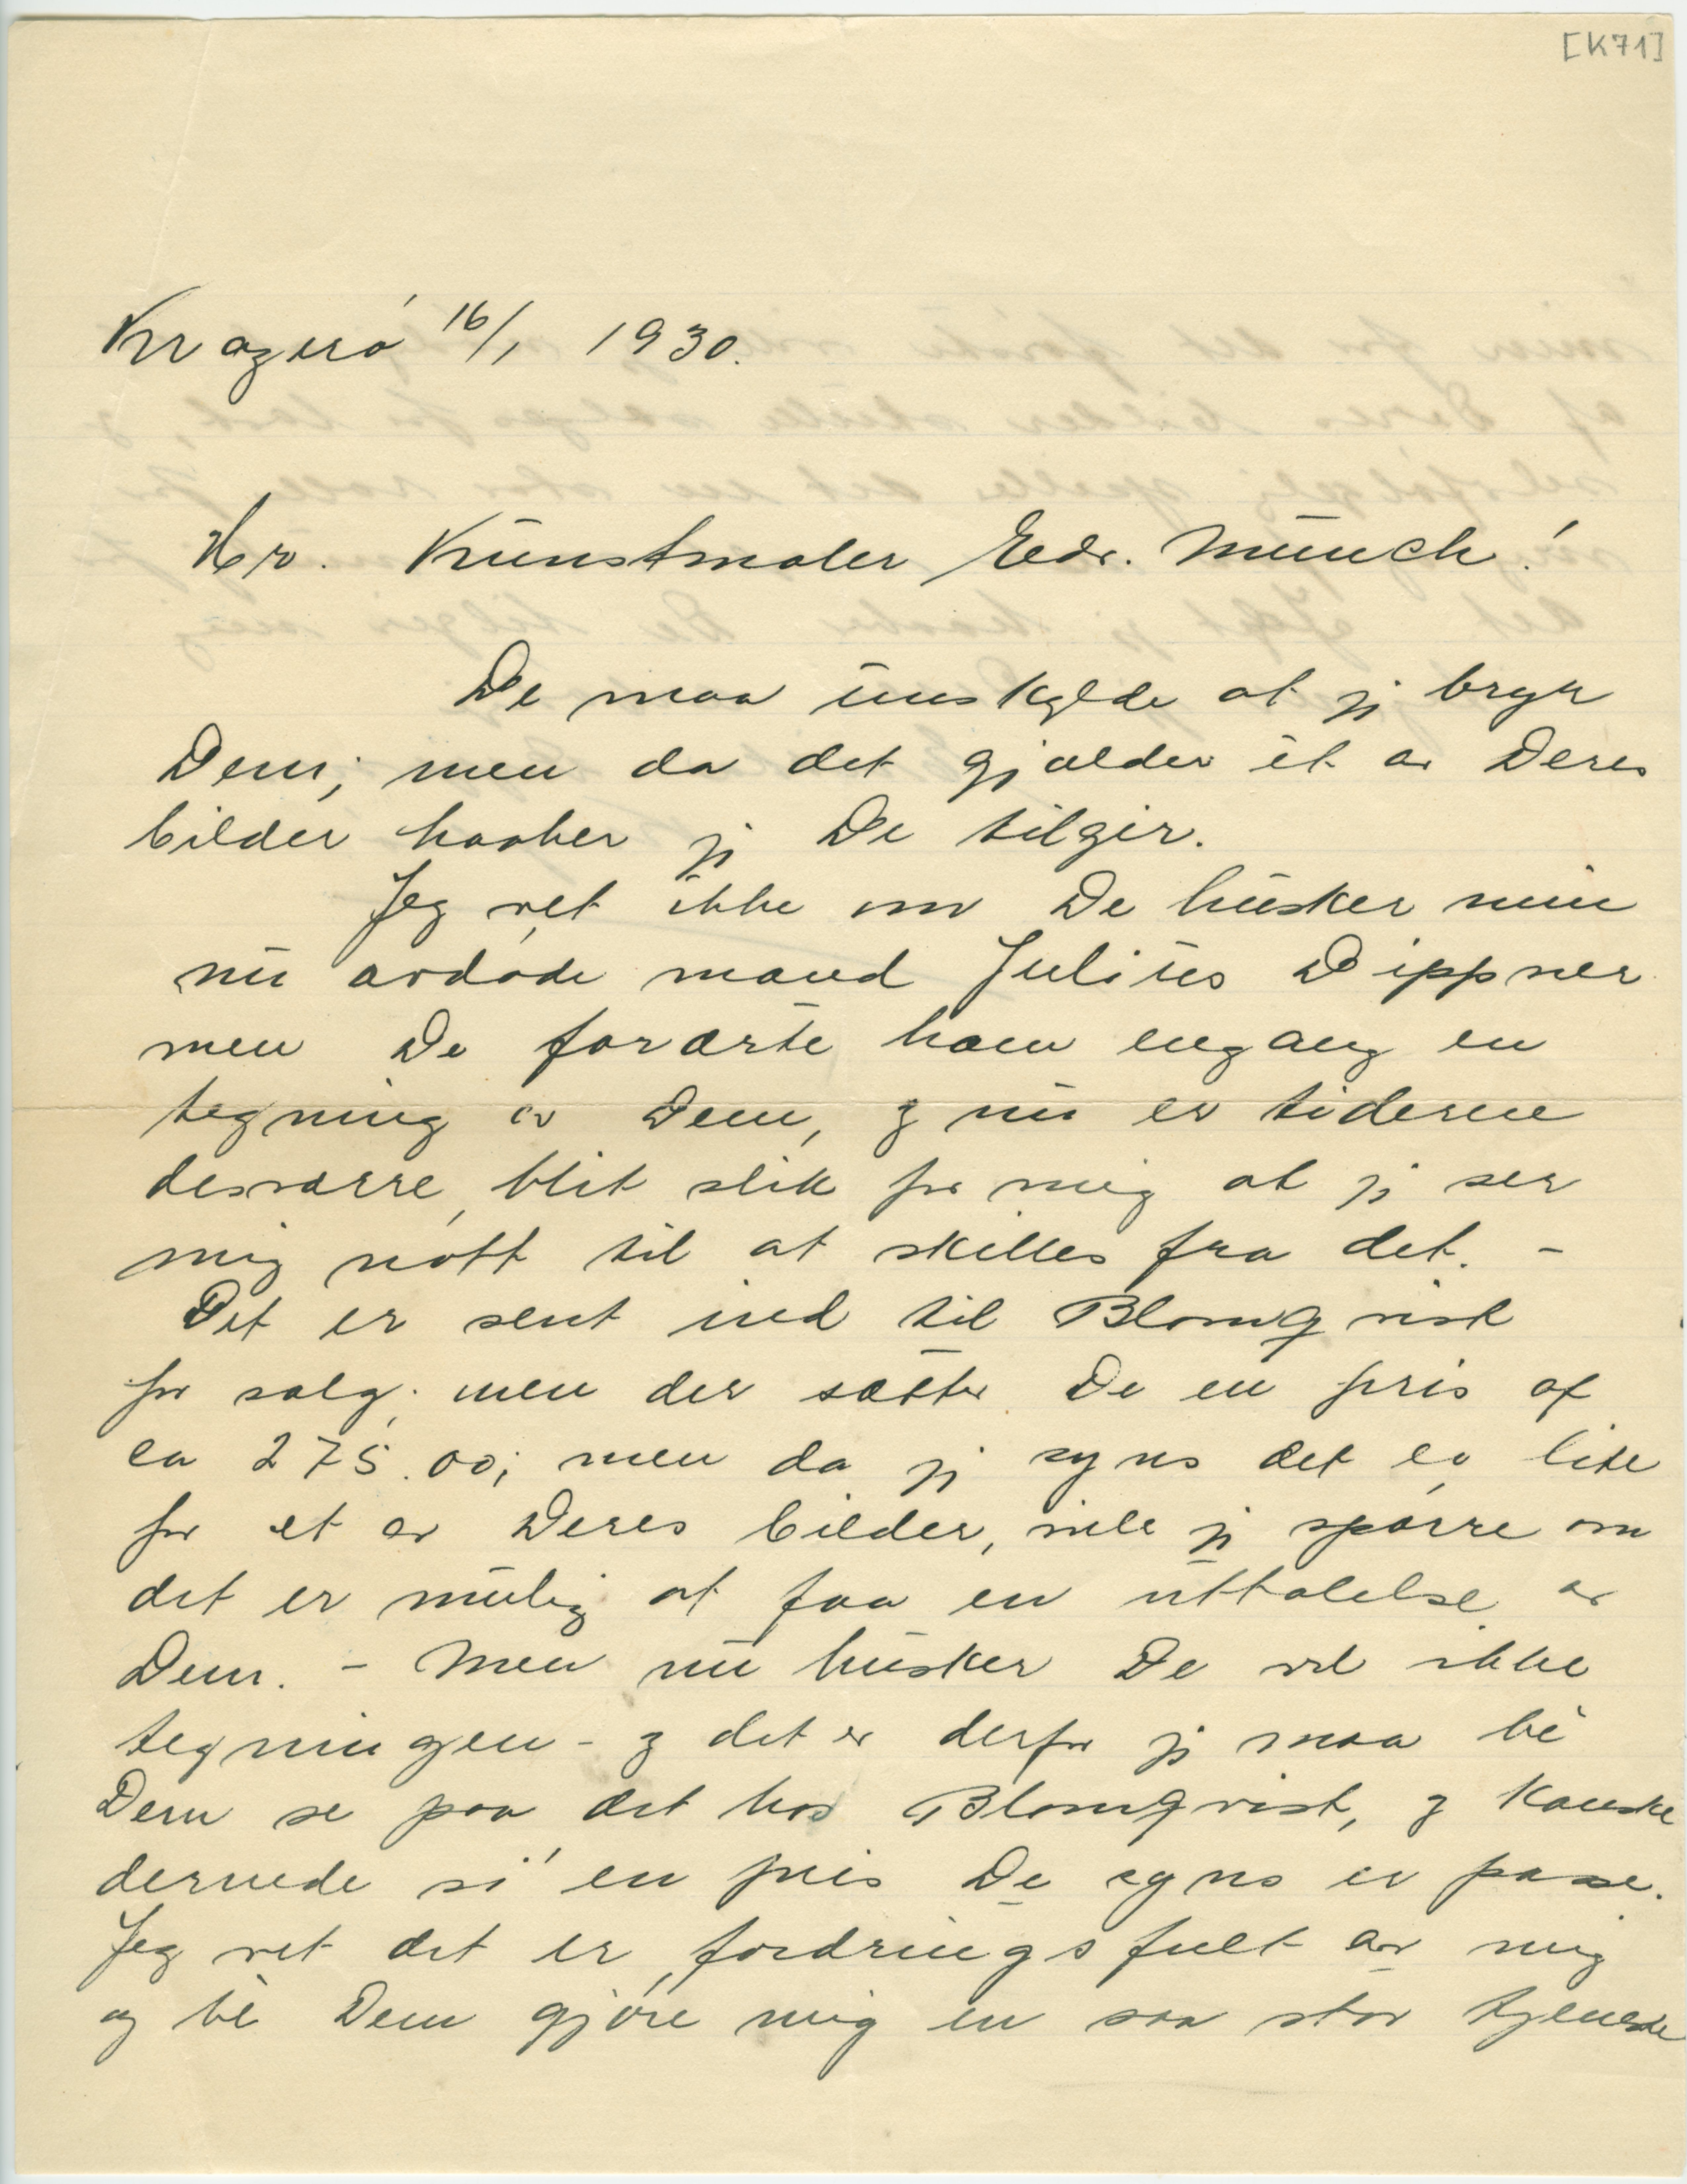 [K71]
Kragerø 16/1 1930.
Hr. Kunstmaler Edv. Munch!
De maa unskylde at jeg bryr
Dem; men da det gjælder et av Deres
bilder haaber jeg De tilgir.
Jeg vet ikke om De husker min
nu avdøde mand Julius Dippner
men De forærte ham engang en
tegning av Dem, og nu er tiderne
desværre blit slik for mig at jeg ser
mig nøtt til at skilles fra det. –
Det er sent ind til Blomqvist
for salg; men der sætter De en pris af
ca 275.00; men da jeg syns det er lite
for et av Deres bilder, vile jeg spørre om
det er mulig at faa en uttalelse av
Dem. – Men nu husker De vel ikke
tegningen – og det er derfor jeg maa bé
Dem se paa det hos Blomqvist, og kanske
dermede si en pris De syns er passe.
Jeg vet det er fordringsfult av mig
og bé Dem gjøre mig en saa stor tjeneste